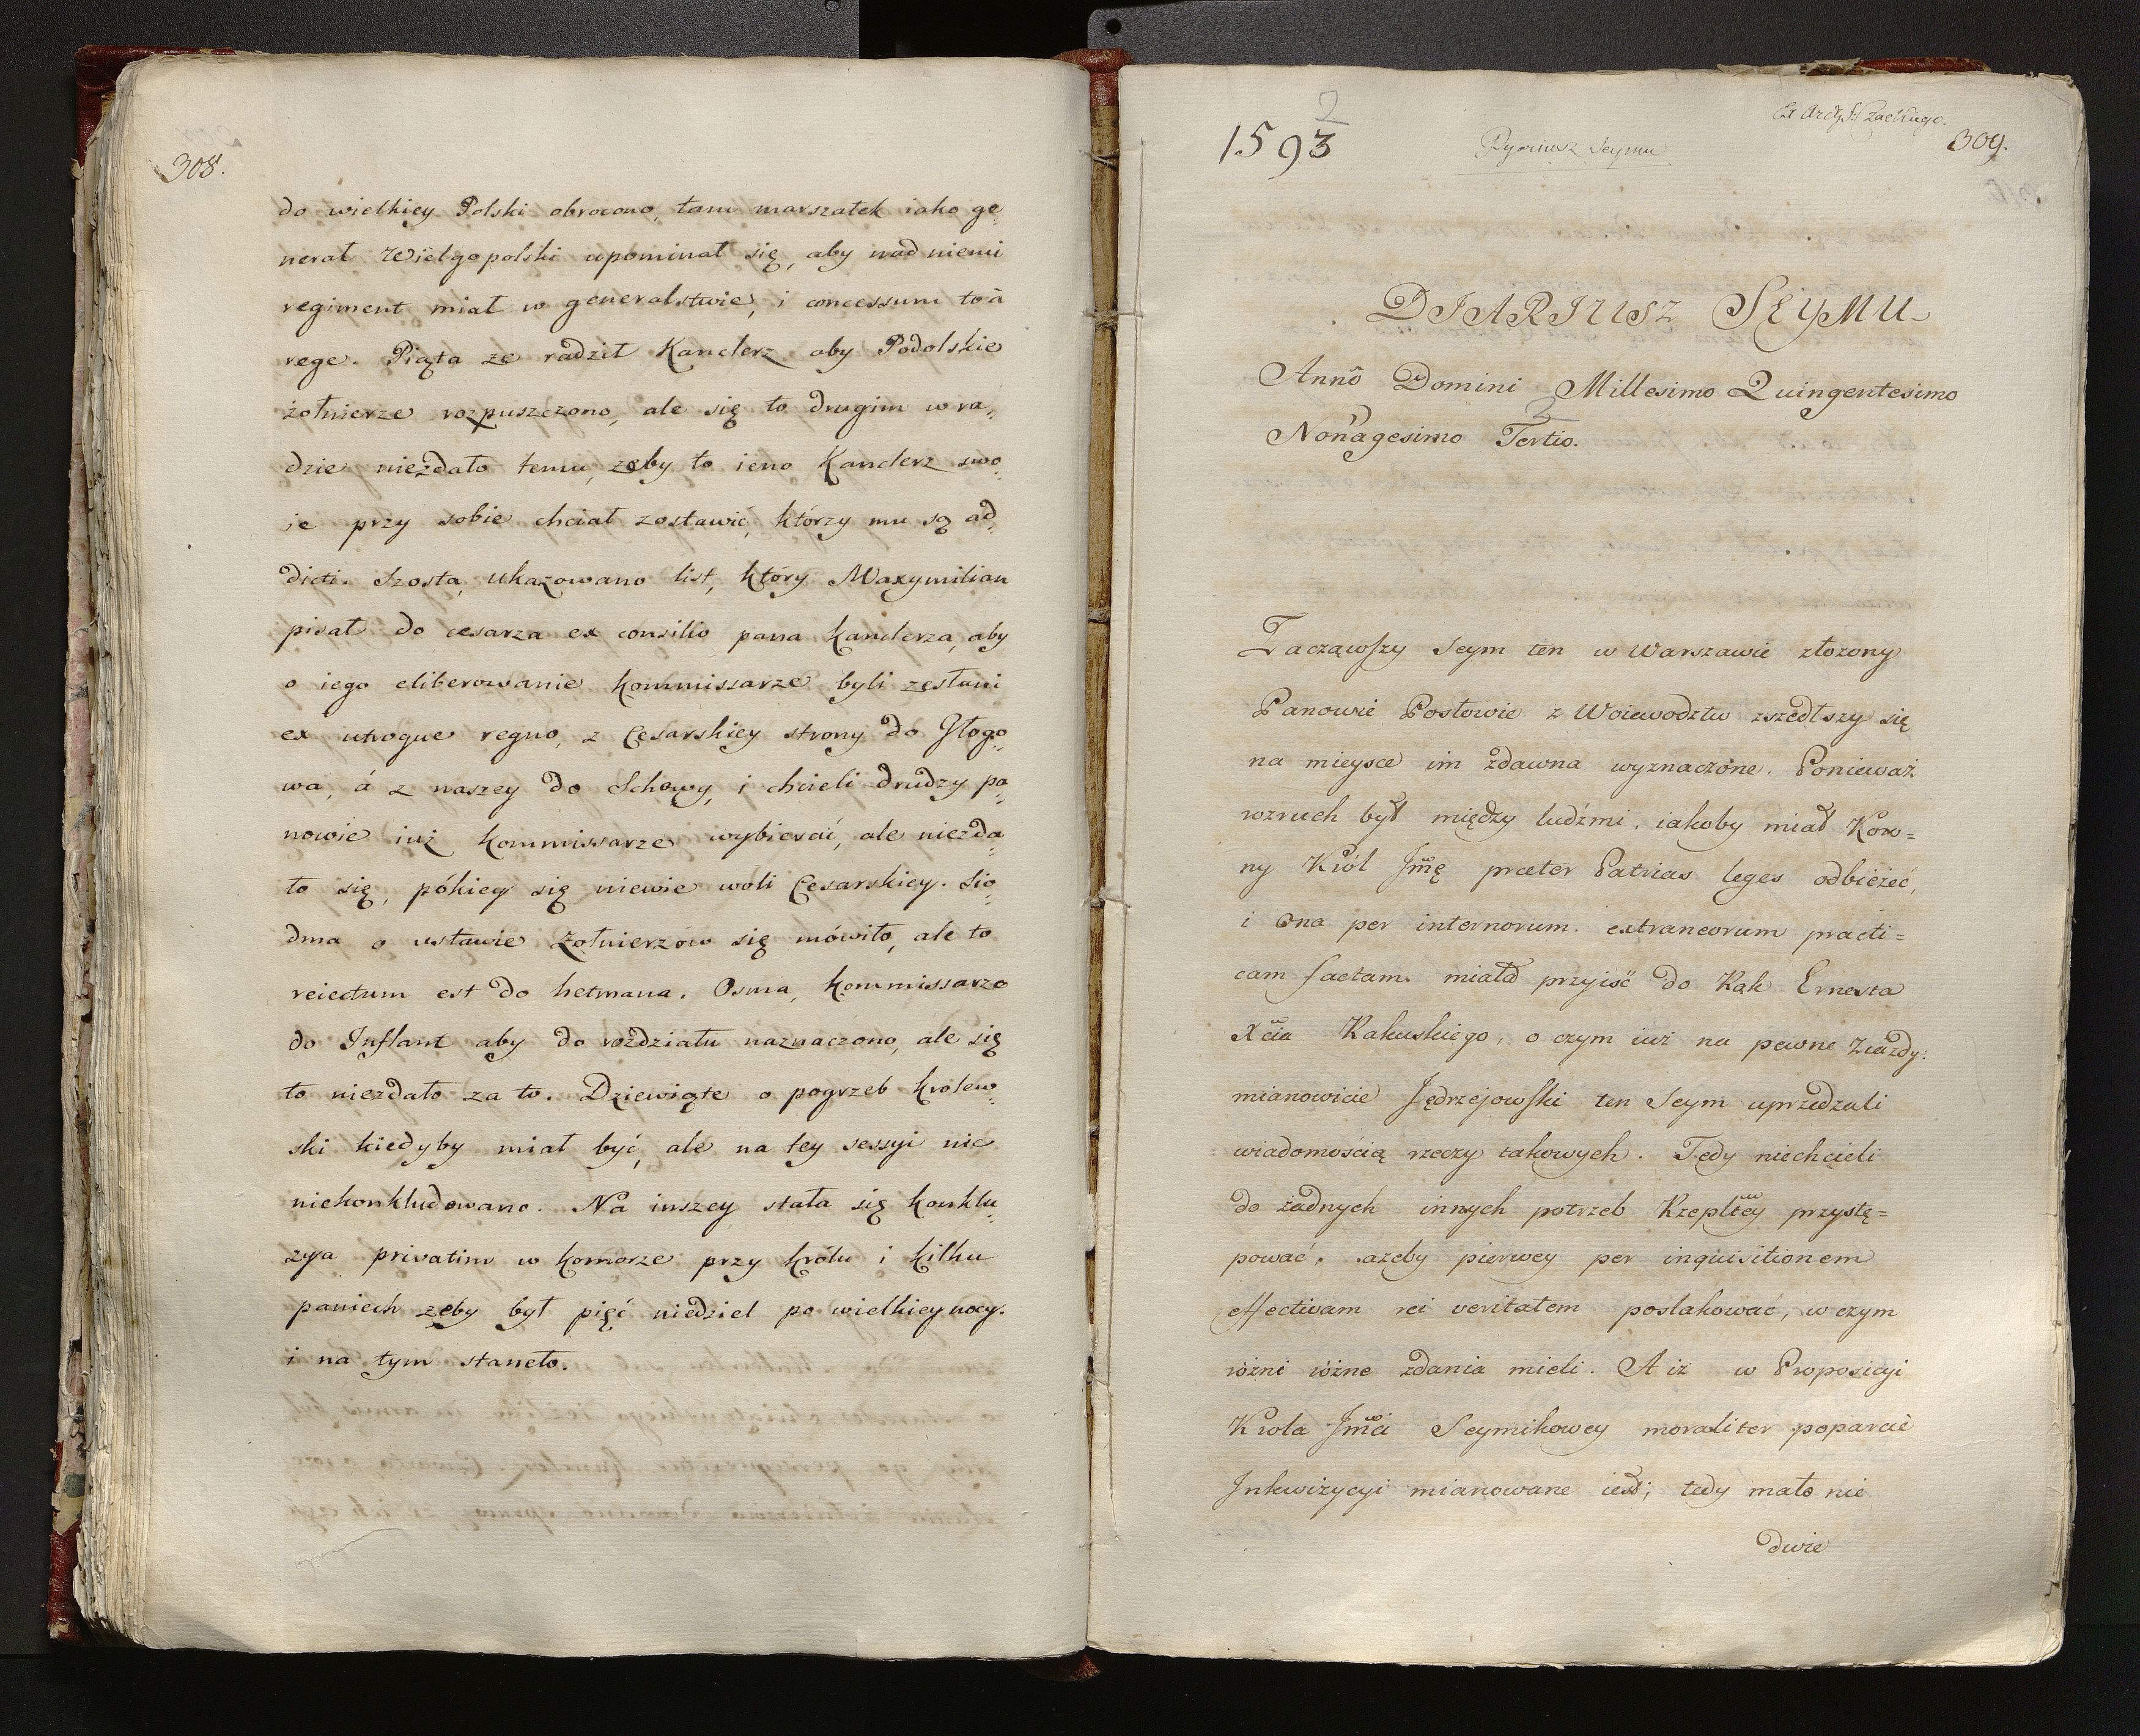 308.
do wielkiey Polski obrocono, tam marszałek iako ge„
nerał Wielgopolski upominał się, aby nad niemi
regiment miał w generalstwie, i concessum to à
rege. Piąta ze radził Kanclerz aby Podolskie
żołnierze rozpuszczono, ale się to drugim w ra„
dzie niezdało temu, zeby to ieno Kanclerz swo„
ie przy sobie chciał zostawić, którzy mu są ad„
dicti. Szosta, ukazowano list, który Maxymilian
pisał do cesarza ex consilio pana kanclerza, aby
o iego eliberowanie kommissarze byli zesłani
ex utroque regno, z Cesarskiey strony do Głogo„
wa, á z naszey do Schowy, i chcieli drudzy pa„
nowie iuż kommissarze wybierać, ale niezda„
ło się, pókiey się niewie woli Cesarskiey. Sio„
dma o ustawie Żołnierzów się mówiło, ale to
reiectum est do hetmana. Osma, kommissarze
do Inflant aby do rozdziału naznaczono, ale się
to niezdało za to. Dziewiąte o pogrzeb krolew„
ski kiedyby miał być, ale na tey sessyi nic
niekonkludowano. Na inszey stała się konklu„
zya privatim w komorze przy królu i kilku
paniech zeby był pięć niedziel po wielkiey nocy.
i na tym staneło.
2
1593
Dyariusz Seymu
309.
DIARIUSZ SEYMU
Annô Domini Millesimo Quingentesimo
2
Nonagesimo Tertio.
Zacząwszy Seym ten w Warszawie złozony
Panowie Posłowie z Woiewodztw zszedłszy się
na mieysce im zdawna wyznaczone. Ponieważ
rozruch był między ludźmi, iakoby miał Koro=
ny Król Jmę præter Patrias leges odbieżeć,
i ona per internorum. extraneorum practi=
cam factam. miała przyiść do Rąk Ernesta
Xcia Rakuskiego, o czym iuż na pewne Ziazdy:
mianowicie Jędrzejowski ten Seym uprzedzali
wiadomością rzeczy takowych. Tedy niechcieli
do żadnych innych potrzeb Rzepltey przystę=
pować. ażeby pierwey per inquisitionem
effectivam rei veritatem poslakować, w czym
różni różne zdania mieli. A iż w Proposicyi
Krola Jmći Seymikowey moraliter poparcie
Inkwizycyi mianowane iest; tedy mało nie
dwie